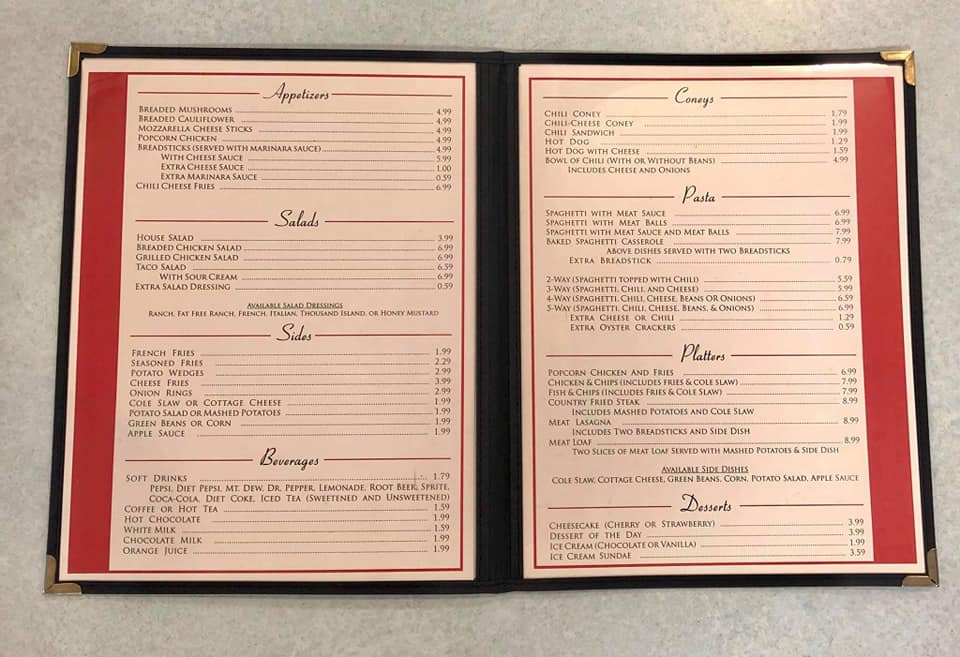 Appetizers
Breaded Mushrooms 4.99
Breaded Cauliflower 4.99
Mozzarella Cheese Sticks 4.99
Popcorn Chicken 4.99
Breadsticks (served with marinara sauce) 4.99
With Cheese Sauce 5.99
Extra Cheese Sauce 1.00
Extra Marinara Sauce 0.59
Chili Cheese Fries 6.99
Salads
House Salad 3.99
Breaded Chicken Salad 6.99
Grilled Chicken Salad 6.99
Taco Salad 6.59
With Sour Cream 6.99
Extra Salad Dressing 0.59
Available Salad Dressings
Ranch, Fat Free Ranch, French, Italian, Thousand Island, or Honey Mustard
Sides
French Fries 1.99
Seasoned Fries 2.29
Potato Wedges 2.99
Cheese Fries 3.99
Onion Rings 2.99
Cole Slaw or Cottage Cheese 1.99
Potato Salad or Mashed Potatoes 1.99
Green Beans or Corn 1.99
Apple Sauce 1.99
Beverages
Soft Drinks 1.79
Pepsi, Diet Pepsi, Mt. Dew, Dr. Pepper, Lemonade, Root Beer, Sprite,
Coca-Cola, Diet Coke, Iced Tea (Sweetened and Unsweetened)
Coffee or Hot Tea 1.59
Hot Chocolate 1.99
White Milk 1.59
Chocolate Milk 1.99
Orange Juice 1.99
Coneys
Chili Coney 1.79
Chili-Cheese Coney 1.99
Chili Sandwich 1.99
Hot Dog 1.29
Hot Dog with Cheese 1.59
Bowl of Chili (With or Without Beans) 4.99
Includes Cheese and Onions
Pasta
Spaghetti with Meat Sauce 6.99
Spaghetti with Meat Balls 6.99
Spaghetti with Meat Sauce and Meat Balls 7.99
Baked Spaghetti Casserole 7.99
Above dishes served with two Breadsticks
Extra Breadstick 0.79
2-Way (Spaghetti topped with Chili) 5.59
3-Way (Spaghetti, Chili, and Cheese) 5.99
4-Way (Spaghetti, Chili, Cheese, Beans OR Onions) 6.59
5-Way (Spaghetti, Chili, Cheese, Beans, & Onions) 6.99
Extra Cheese or Chili 1.29
Extra Oyster Crackers 0.59
Platters
Popcorn Chicken and Fries 6.99
Chicken & Chips (includes fries & cole slaw) 7.99
Fish & Chips (includes Fries & Cole Slaw) 7.99
Country Fried Steak 8.99
Includes Mashed Potatoes and Cole Slaw
Meat Lasagna 8.99
Includes Two Breadsticks and Side Dish
Meat Loaf 8.99
Two Slices of Meat Loaf Served with Mashed Potatoes & Side Dish
Available Side Dishes
Cole Slaw, Cottage Cheese, Green Beans, Corn, Potato Salad, Apple Sauce
Desserts
Cheesecake (Cherry or Strawberry) 3.99
Dessert of the Day 3.99
Ice Cream (Chocolate or Vanilla) 1.99
Ice Cream Sundae 3.59